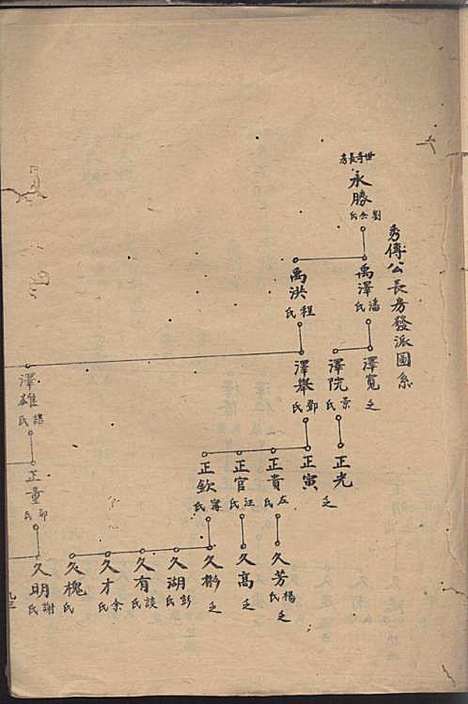 秀傅公長房發派圖系
世奇長房
永勝
劉氏 余氏
禹澤
潘氏
禹洪
程氏
澤寬
乏
澤院
景氏
澤舉
鄧氏
澤雄
楊氏
正光
正寅
乏
正貴
左氏
正官
汪氏
正欽
寗氏
正童
鄧氏
久芳
楊氏
乏
久高
乏
久彬
乏
久湖
彭氏
久有
談氏
久才
余氏
久槐
氏
久明
謝氏
九三